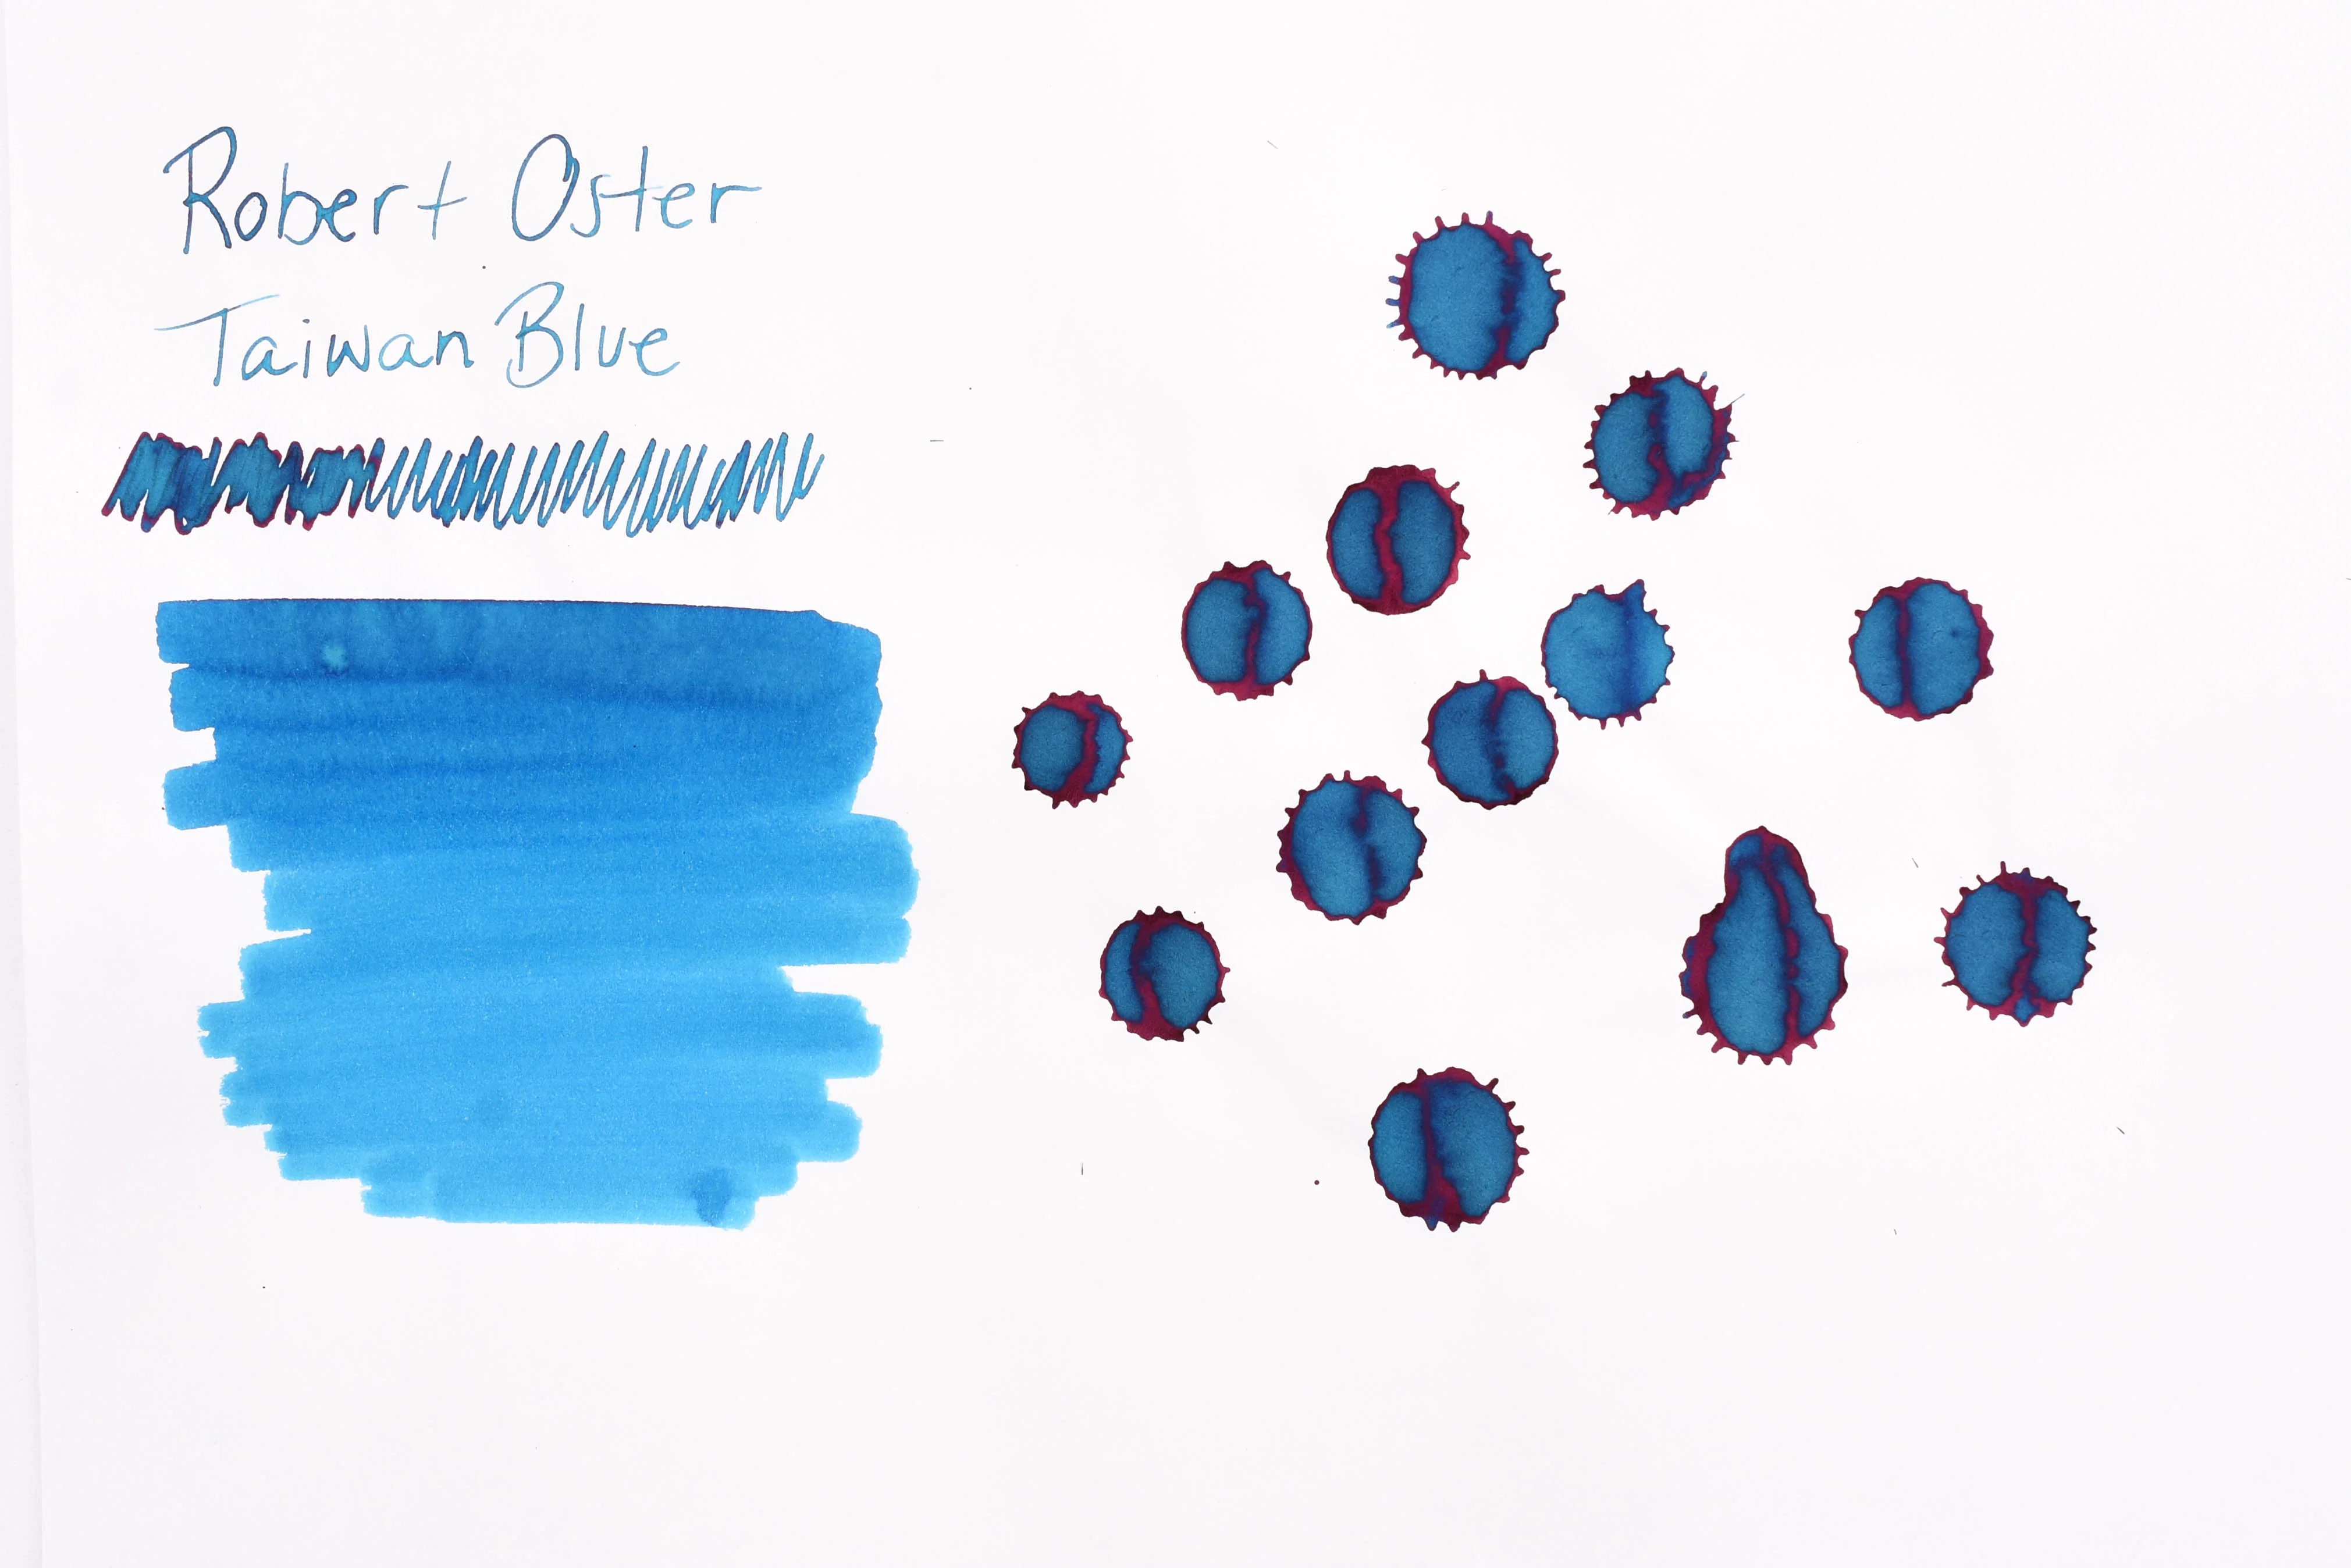 Robert Oster
Taiwan Blue